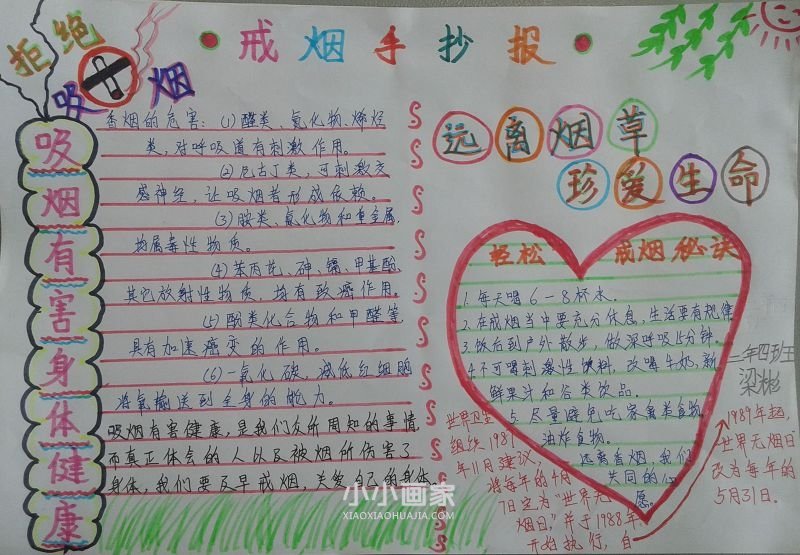 拒绝
吸烟
戒烟手抄报
吸烟有害身体健康
香烟的危害:(1)醛类、氮化物、烯烃
类,对呼吸道有刺激作用。
(2)尼古丁类,可刺激交
感神经,让吸烟者形成依赖。
(3)胺类、氰化物和重金属,
均属毒性物质。
(4)苯丙芘、砷、镉、甲基酚、
其它放射性物质,均有致癌作用。
(5)酚类化合物和甲醛等,
具有加速癌变的作用。
(6)一氧化碳,减低红细胞
将氧输送到全身的能力。
吸烟有害健康,是我们众所周知的事情,
而真正体会的人以及被烟所伤害了
身体,我们要及早戒烟,关爱自己的身体。
远离烟草
珍爱生命
轻松 戒烟秘诀
1.每天喝6-8杯水。
2.在戒烟当中要充分休息,生活要有规律
3.饭后到户外散步,做深呼吸15分钟。
4.不可喝刺激性饮料,改喝牛奶,新
鲜果汁和谷类饮品。
5.尽量避免吃家禽类食物
油炸食物。
远离香烟,我们
共同的心
愿。
世界卫生
组织1987
年11月建议,
将每年的4月
7日定为“世界无
烟日”,并于1988年
开始执行,自
1989年起,
世界无烟日
改为每年的
5月31日。
二年四班
梁彬
小小画家
XIAOXIAOHUAJIA.COM